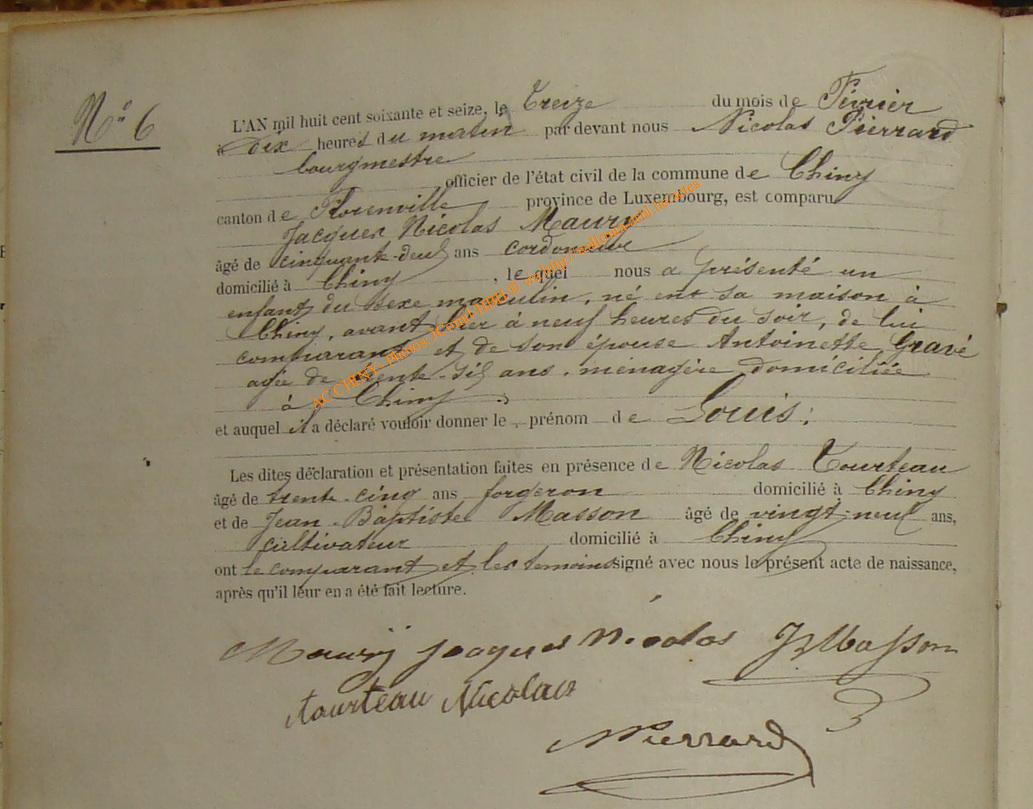 N° 6
L'AN mil huit cent soixante et seize, le Treize du mois de Février
à dix heures du matin par devant nous Nicolas Pierrard
bourgmestre
officier de l'état civil de la commune de Chiny
canton de Florenville province de Luxembourg, est comparu
Jacques Nicolas Maury
âgé de cinquante-deux ans cordonnier
domicilié à Chiny, lequel nous a présenté un
enfant du sexe masculin, né en sa maison à
Chiny, avant hier à neuf heures du soir, de lui
comparant et de son épouse Antoinette Gravé
agée de trente-six ans, ménagère, domiciliée
à Chiny.
et auquel il a déclaré vouloir donner le prénom de Louis.
Les dites déclaration et présentation faites en présence de Nicolas Tourteau
âgé de trente-cinq ans forgeron domicilié à Chiny
et de Jean-Baptiste Masson âgé de vingt-neuf ans,
cultivateur domicilié à Chiny
ont le comparant et les témoins signé avec nous le présent acte de naissance,
après qu'il leur en a été fait lecture.
Maury Jacques Nicolas JBMasson
tourteau Nicolas
NPierrard